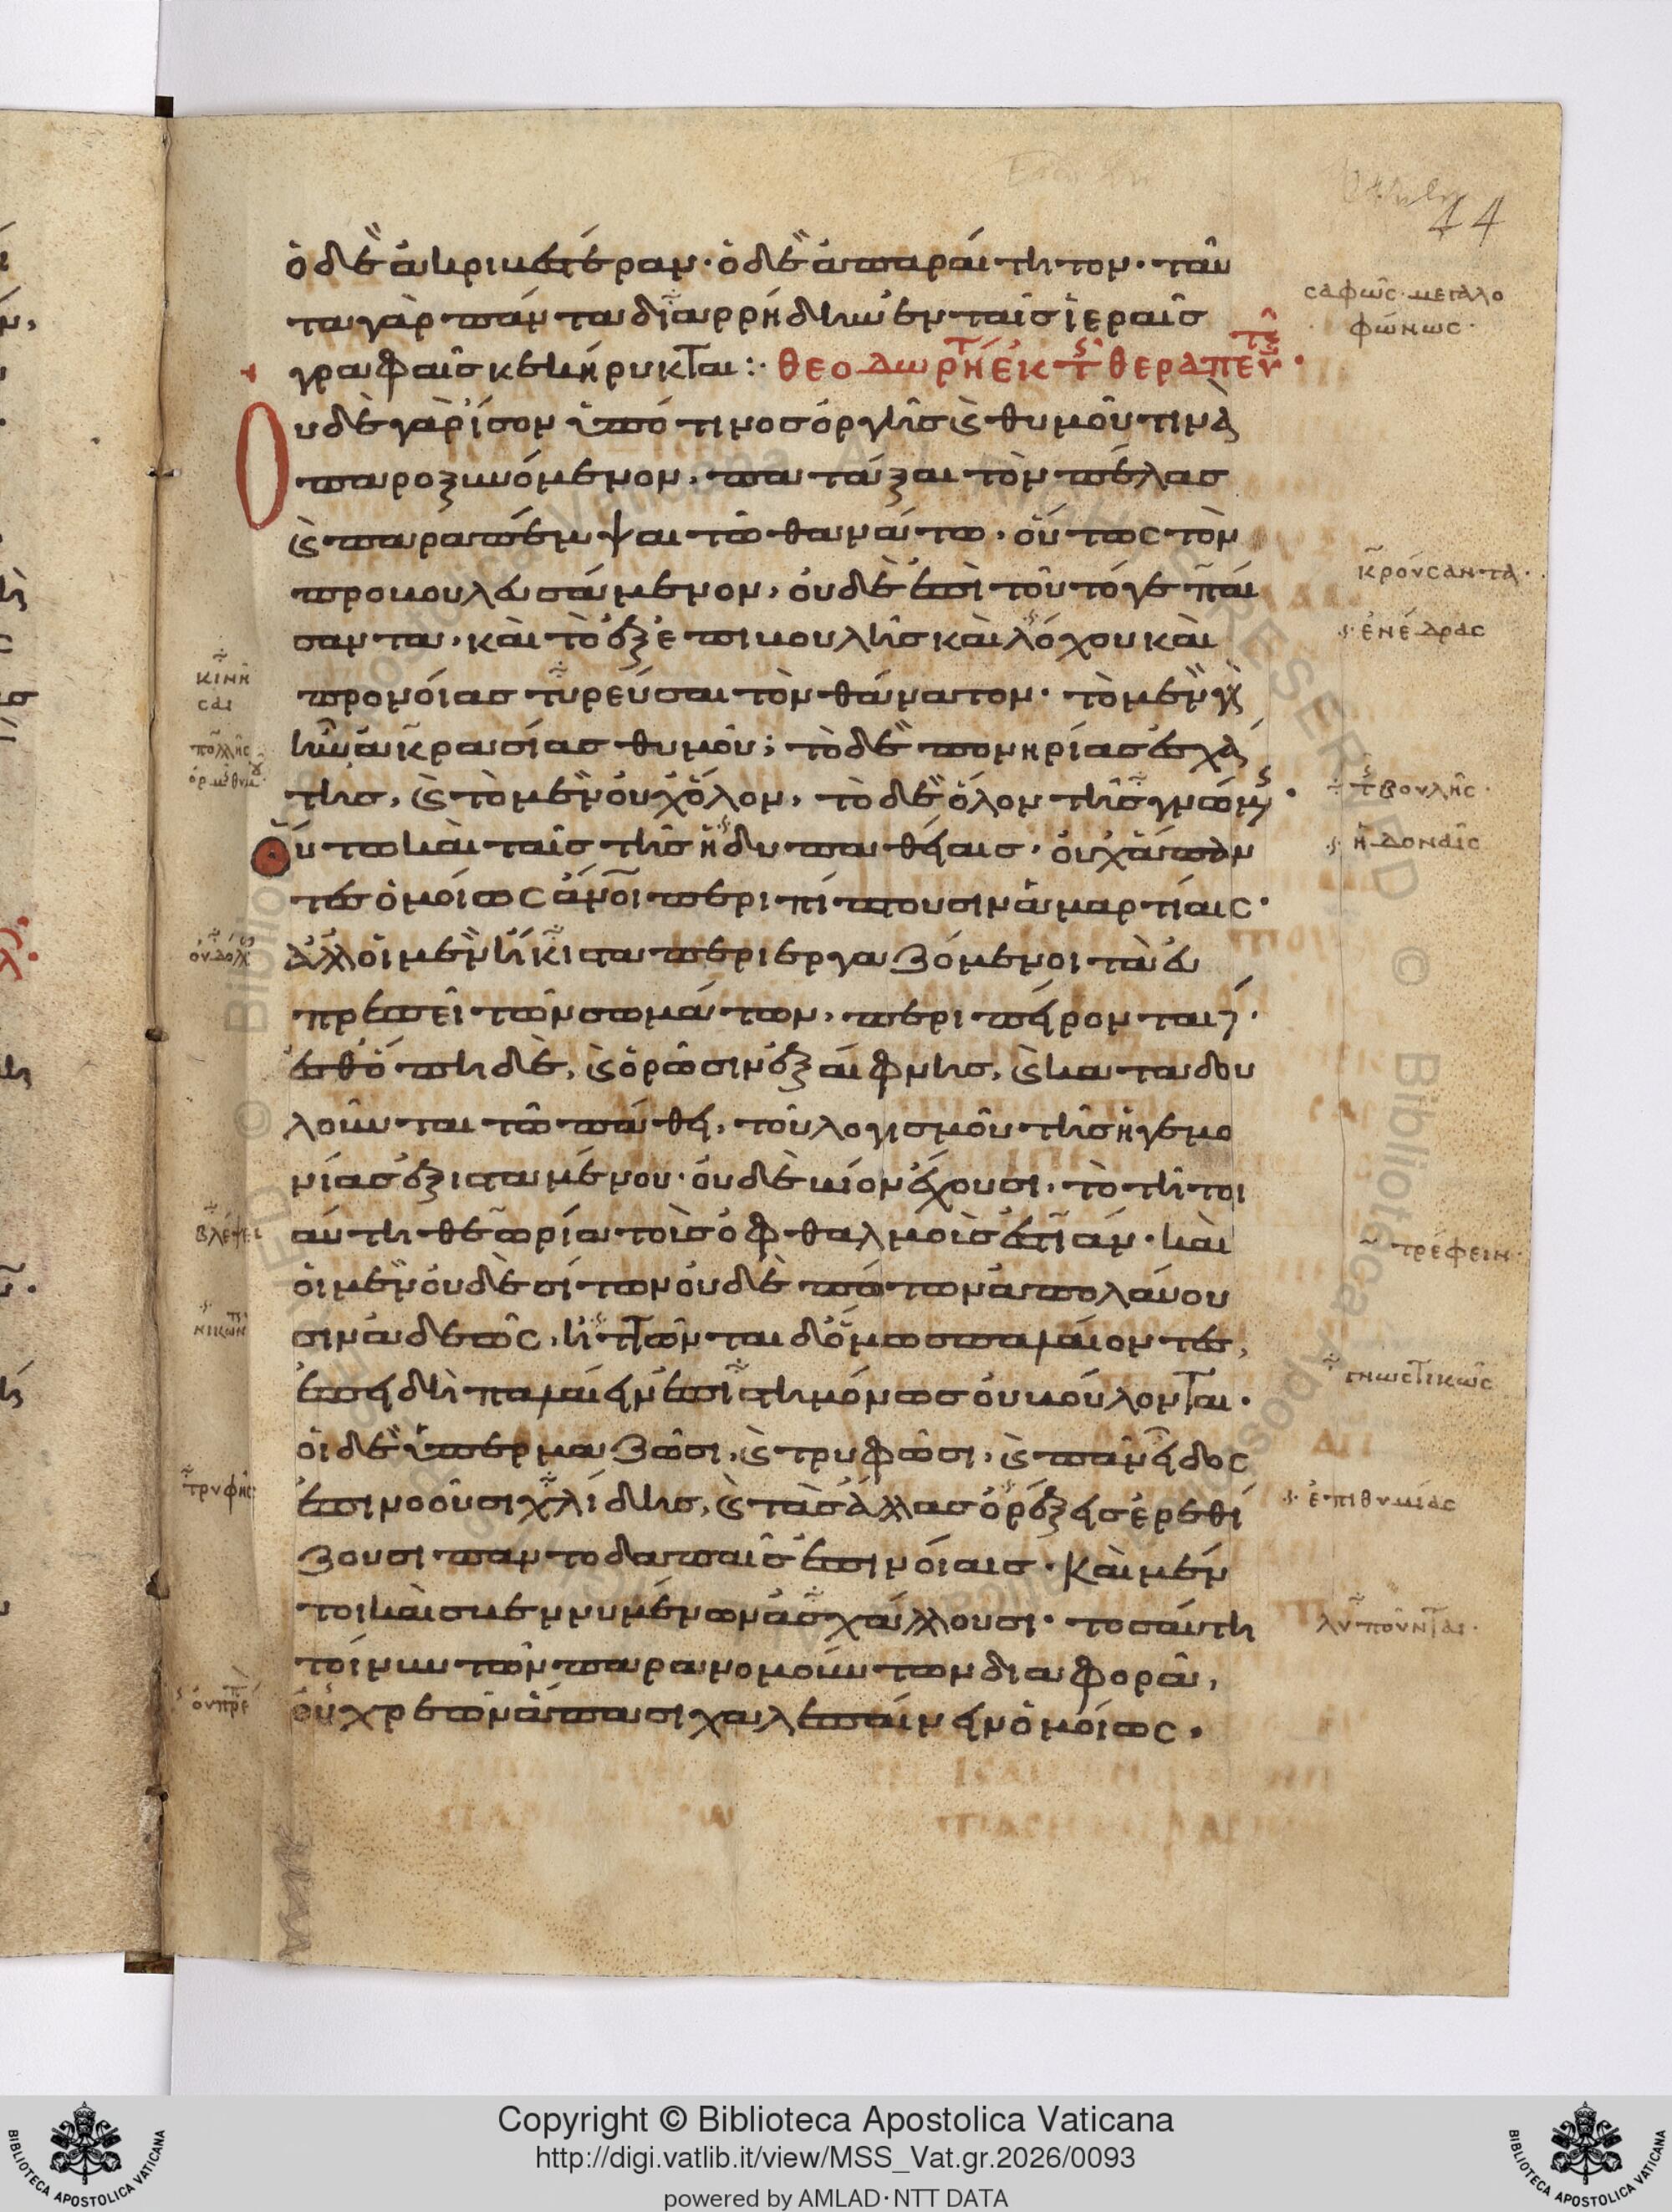 44
ὁ δὲ ἀκριβεστέραν· ὁ δὲ ἀπαραίτητον· ταῦ
τα γὰρ πάντα διαρρήδην ἐν ταῖς ἱεραῖς
γραφαῖς κεκήρυκται:· θεοδωρήτ ἐκ τ θεραπευτ·
Οὐδὲ γὰρ ἴσον ὑπό τινος ὀργῆς ϗ θυμοῦ τινὰ
παροξυνόμενον, πατάξαι τὸν πέλας
ϗ παραπέμψαι τῶ θανάτω· οὕτως τὸν
προβουλευσάμενον, οὐδὲ ἐπὶ τοῦτό γε παί
σαντα, καὶ τὸ ἐξ ἐπιβουλῆς καὶ λόχου καὶ
προνοίας τυρεῦσαι τὸν θάνατον· τὸ μὲν γὰρ
ἦν ἀκρασίας θυμοῦ; τὸ δὲ πονηρίας ἐσχά
της, ϗ τὸ μὲν οὐχ ὅλον, τὸ δὲ ὅλον τῆς γνώμης·
Οὕτω καὶ ταῖς τῆς ἡδυπαθείαις· οὐχ ἅπαν
τες ὁμοίως ἄνοι περιπίπτουσιν ἁμαρτίαις·
ἀλλ οἱ μὲν ἥκιστα περιεργαζόμενοι τὰ εὐ
πρεπεῖ τῶν σωμάτων, περιπείρονται γ·
ἔσθ ὅπη δὲ, ϗ ὁρῶσιν ἐξαίφνης, ϗ καταδου
λοῦνται τῶ πάθει, τοῦ λογισμοῦ τῆς ἡγεμο
νίας ἐξισταμένου· οὐδὲ βίον ἔχουσι, τὸ τῆ τοι
αύτη θεωρία τοὺς ὀφθαλμοὺς ἑστιᾶν· καὶ
οἱ μὲν οὐδὲ σίτων οὐδὲ πότων ἀπολαύου
σιν ἀδεῶς, ἡττῶνται δ ὅμως παλαίοντες,
ἐπειδὴ παλαίειν ἐπιστημόνως οὐ βούλονται·
οἱ δὲ ὑπερμαζῶσι, ϗ τρυφῶσι, ϗ πᾶν εἶδος
ἐπινοοῦσι χλίδης, ϗ τὰς ἄλλας ὀρέξεις ἐρεθί
ζουσι παντοδαπαῖς ἐπινοίαις· Καὶ μέν
τοι καὶ σβεννυμένων ἀσχάλλουσι· τοσαύτη
τοίνυν τῶν παρανομούντων διαφορά,
οὐ χρεὼν ἅπασι χαλεπαίνειν ὁμοίως·
σαφῶς· μεγαλο
φώνως·
κρούσαντα·
ἐνέδρας
τ βουλῆς·
ἡδοναῖς
τρέφειν·
γνωστικῶς
ἐπιθυμίας
λυποῦνται·
κινῆ
σαι
πολλῆς
βλέψει
τρυφῆς
οὐ πρέ
Copyright © Biblioteca Apostolica Vaticana
http://digi.vatlib.it/view/MSS_Vat.gr.2026/0093
powered by AMLAD·NTT DATA
BIBLIOTECA APOSTOLICA VATICANA
BIBLIOTECA APOSTOLICA VATICANA